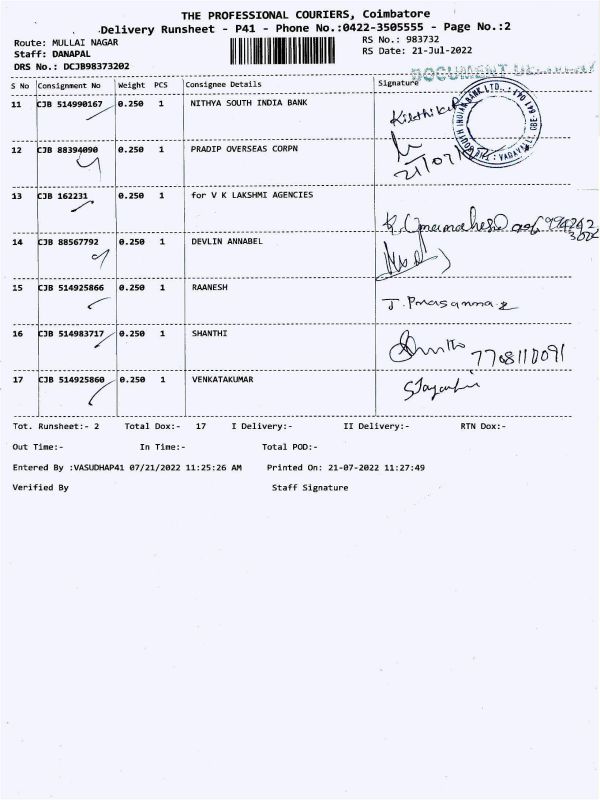 THE PROFESSIONAL COURIERS, Coimbatore
Delivery Runsheet - P41 - Phone No.:0422-3505555 - Page No.:2
Route: MULLAI NAGAR RS No.: 983732
Staff: DANAPAL RS Date: 21-Jul-2022
DRS No.: DCJB98373202
S No Consignment No Weight PCS Consignee Details Signature
11 CJB 514990167 0.250 1 NITHYA SOUTH INDIA BANK
12 CJB 88394090 0.250 1 PRADIP OVERSEAS CORPN
13 CJB 162231 0.250 1 for V K LAKSHMI AGENCIES
14 CJB 88567792 0.250 1 DEVLIN ANNABEL
15 CJB 514925866 0.250 1 RAANESH
J. Prasanna
16 CJB 514983717 0.250 1 SHANTHI
7708110091
17 CJB 514925860 0.250 1 VENKATAKUMAR
Tot. Runsheet:- 2 Total Dox:- 17 I Delivery:- II Delivery:- RTN Dox:-
Out Time:- In Time:- Total POD:-
Entered By :VASUDHAP41 07/21/2022 11:25:26 AM Printed On: 21-07-2022 11:27:49
Verified By Staff Signature